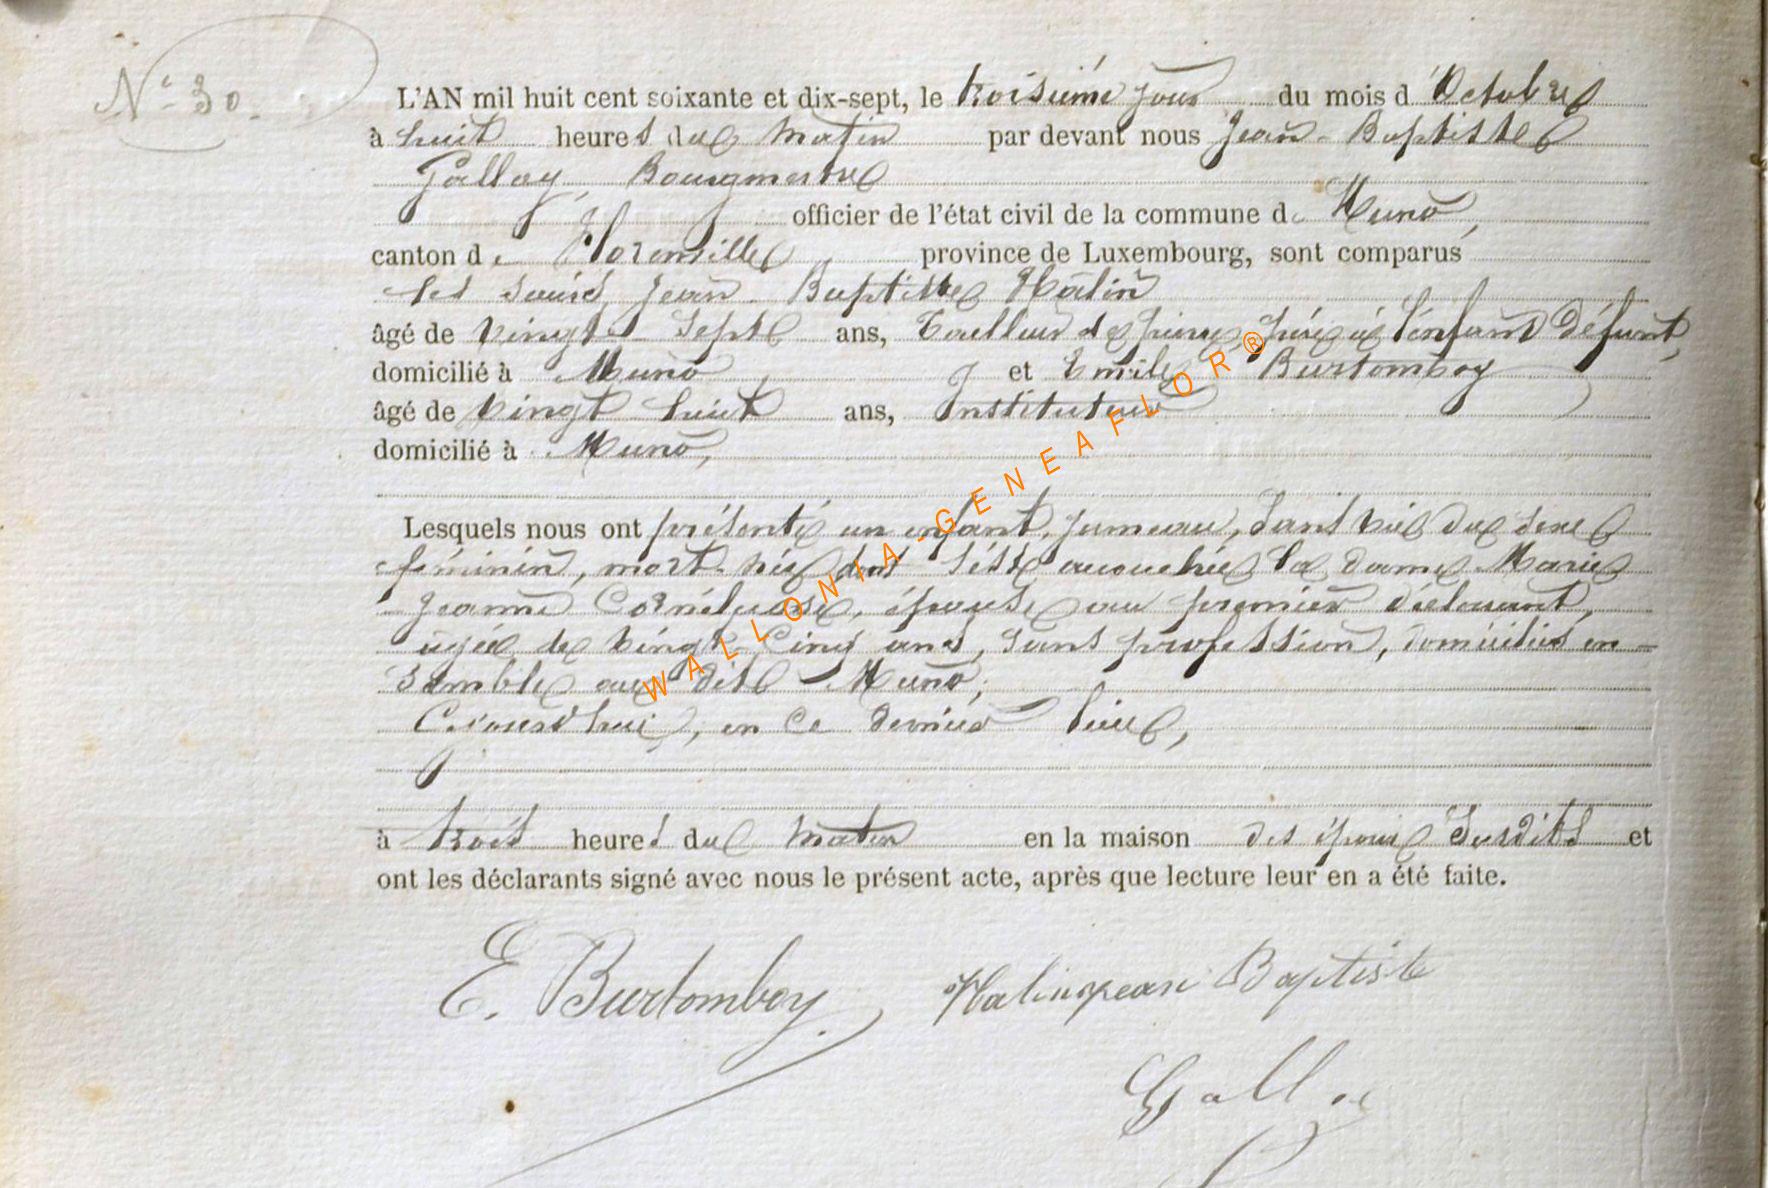 N° 30.
L'AN mil huit cent soixante et dix-sept, le troisième jour du mois d'Octobre
à huit heures du matin par devant nous Jean-Baptiste
Galloy, Bourgmestre
officier de l'état civil de la commune de Muno,
canton de Florenville province de Luxembourg, sont comparus
les sieurs Jean-Baptiste Halin
âgé de vingt-sept ans, Tailleur de pierre, père à l'enfant défunt,
domicilié à Muno et Emile Burtomboy
âgé de vingt huit ans, Instituteur
domicilié à Muno,
Lesquels nous ont présenté un enfant, jumeau, sans vie du sexe
féminin, mort-née dont s'est accouchée la dame Marie
Jeanne épouse au premier déclarant,
âgée de vingt-cinq ans, sans profession, domiciliés en-
semble au dit Muno,
Cejourd'hui, en ce dernier lieu,
à trois heures du matin en la maison des époux susdits et
ont les déclarants signé avec nous le présent acte, après que lecture leur en a été faite.
E. Burtomboy Halin Jean Baptiste
Galloy
WALLONIA-GENEAFLOR®